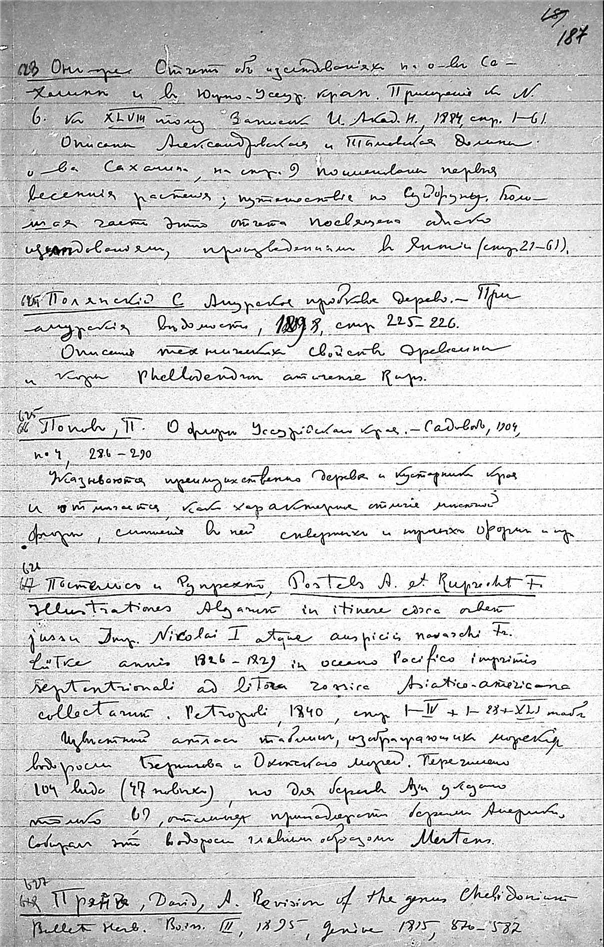 187
Отчетъ объ изследованіяхъ на о-вѣ Са-
халинѣ и въ Южно-Уссур. краѣ. Приложеніе къ N
6. къ XLVIII тому Записокъ И. Акад. Н., 1884 стр. 1-61
Описаны Александровская и Тымовская долины
о-ва Сахалина, на стр. 9 поименованы первыя
весеннія растенія, путешествіе по Суйфуну. Боль-
шая часть этого отчета посвящена однако
изследованіям, произведенным в Японіи (стр. 21-61).
Полянскій С Амурское пробковое дерево. - При
амурскія вѣдомости, 1898, стр 225-226.
Описаніе техническихъ свойствъ древесины
и коры Phellodendron amurense Rupr.
625
Поповъ, П. О флорѣ Уссурійскаго края. - Садоводъ, 1904,
no 4, 286-290
Указываются преимущественно деревья и кустарники края
и отмѣчается, как характерное отличіе мѣстной
флоры, смѣшеніе въ ней сѣверныхъ и южныхъ формъ
626
Постельсъ и Рупрехтъ, Postels A. et Ruprecht F.
Illustrationes Algarum in itinere circa orbem
jussu Imp. Nikolai I atque auspiciis navarchi Fr.
Lütke annis 1826-1829 in oceano Pacifico imprimis
septentrionali ad litora rossica Asiatico-americana
collectarum. Petropoli, 1840, стр I-IV + 1-28+XLI табл
Извѣстный атласъ таблицъ, изображающихъ морскія
водоросли Берингова и Охотскаго морей. Перечислено
104 вида (47 новыхъ), но для береговъ Азіи указано
только 67, остальныя принадлежатъ берегамъ Америки.
Собиралъ эти водоросли главнымъ образомъ Mertens.
627
David, A. Revision of the genus Chelidonium
Bullet Herb. Boiss. III, 1895, Genève 1895, 570-587